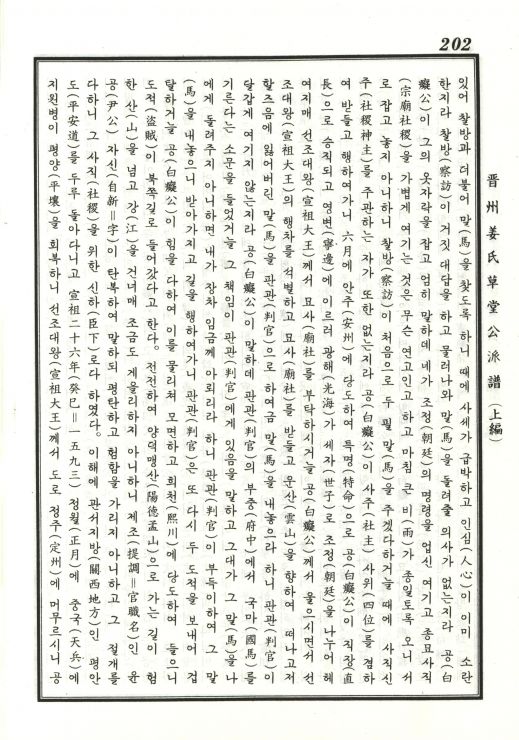 202
晋州姜氏草堂公派譜(上編)
있어 찰방과 더불어 말(馬)을 찾도록 하니 때에 사세가 급박하고 인심(人心)이 이미 소란
한지라 찰방(察訪)이 거짓 대답을 하고 물러나와 말(馬)을 돌려줄 의사가 없는지라 공(白
癡公)이 그의 옷자락을 잡고 엄히 말하데 네가 조정(朝廷)의 명령을 업신 여기고 종묘사직
(宗廟社稷)을 가볍게 여기는 것은 무슨 연고인고 하고 마침 큰 비(雨)가 종일토록 오니 서
로 잡고 놓지 아니하니 찰방(察訪)이 처음으로 두 필 말(馬)을 주겠다하거늘 때에 사직신
주(社稷神主)를 주관하는 자가 또한 없는지라 공(白癡公)이 사주(社主) 사위(四位)를 겸하
여 받들고 행하여가니 六月에 안주(安州)에 당도하여 특명(特命)으로 공(白癡公)이 직장(直
長)으로 승직되고 영변(寧邊)에 이르러 광해(光海)가 세자(世子)로 조정(朝廷)을 나누어 헤
여지매 선조대왕(宣祖大王)께서 묘사(廟社)를 부탁하시거늘 공(白癡公)께서 울으시면서 선
조대왕(宣祖大王)의 행차를 석별하고 묘사(廟社)를 받들고 운산(雲山)을 향하여 떠나고저
할즈음에 잃어버린 말(馬)을 판관(判官)으로 하여금 말(馬)을 내놓으라 하니 판관(判官)이
달갑게 여기지 않는지라 공(白癡公)이 말하데 판관(判官)의 부중(府中)에서 국마(國馬)를
기른다는 소문을 들었거늘 그 책임이 판관(判官)에게 있음을 말하고 그대가 그 말(馬)을 나
에게 돌려주지 아니하면 내가 장차 임금께 아뢰리라 하니 판관(判官)이 부득이하여 그 말
(馬)을 내놓으니 받아가지고 길을 행하여가니 판관(判官)은 또 다시 두 도적을 보내어 겁
탈하거늘 공(白癡公)이 힘을 다하여 이를 물리쳐 모면하고 희천(熙川)에 당도하여 들으니
도적(盜賊)이 북쪽길로 들어갔다고 한다. 전전하여 양덕맹산(陽德孟山)으로 가는 길이 험
한 산(山)을 넘고 강(江)을 건너매 조금도 게을리하지 아니하니 제조(提調=官職名)인 윤
공(尹公) 자신(自新=字)이 탄복하여 말하되 평탄하고 험함을 가리지 아니하고 그 절개를
다하니 그 사직(社稷)을 위한 신하(臣下)로다 하였다. 이해에 관서지방(關西地方)인 평안
도(平安道)를 두루 돌아다니고 宣祖二十六年(癸巳=一五九三) 정월(正月)에 중국(天兵)에
지원병이 평양(平壤)을 회복하니 선조대왕(宣祖大王)께서 도로 정주(定州)에 머무르시니 공